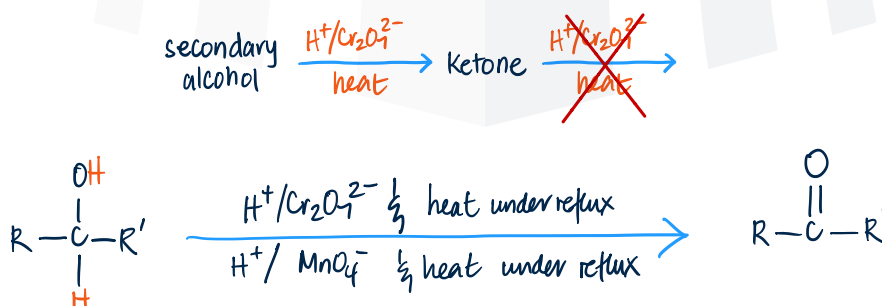 secondary alcohol H⁺/Cr₂O₇²⁻ heat → ketone H⁺/Cr₂O₇²⁻ heat →
OH
R—C—R'
H
H⁺/Cr₂O₇²⁻ & heat under reflux
H⁺/ MnO₄⁻ & heat under reflux
O
R—C—R